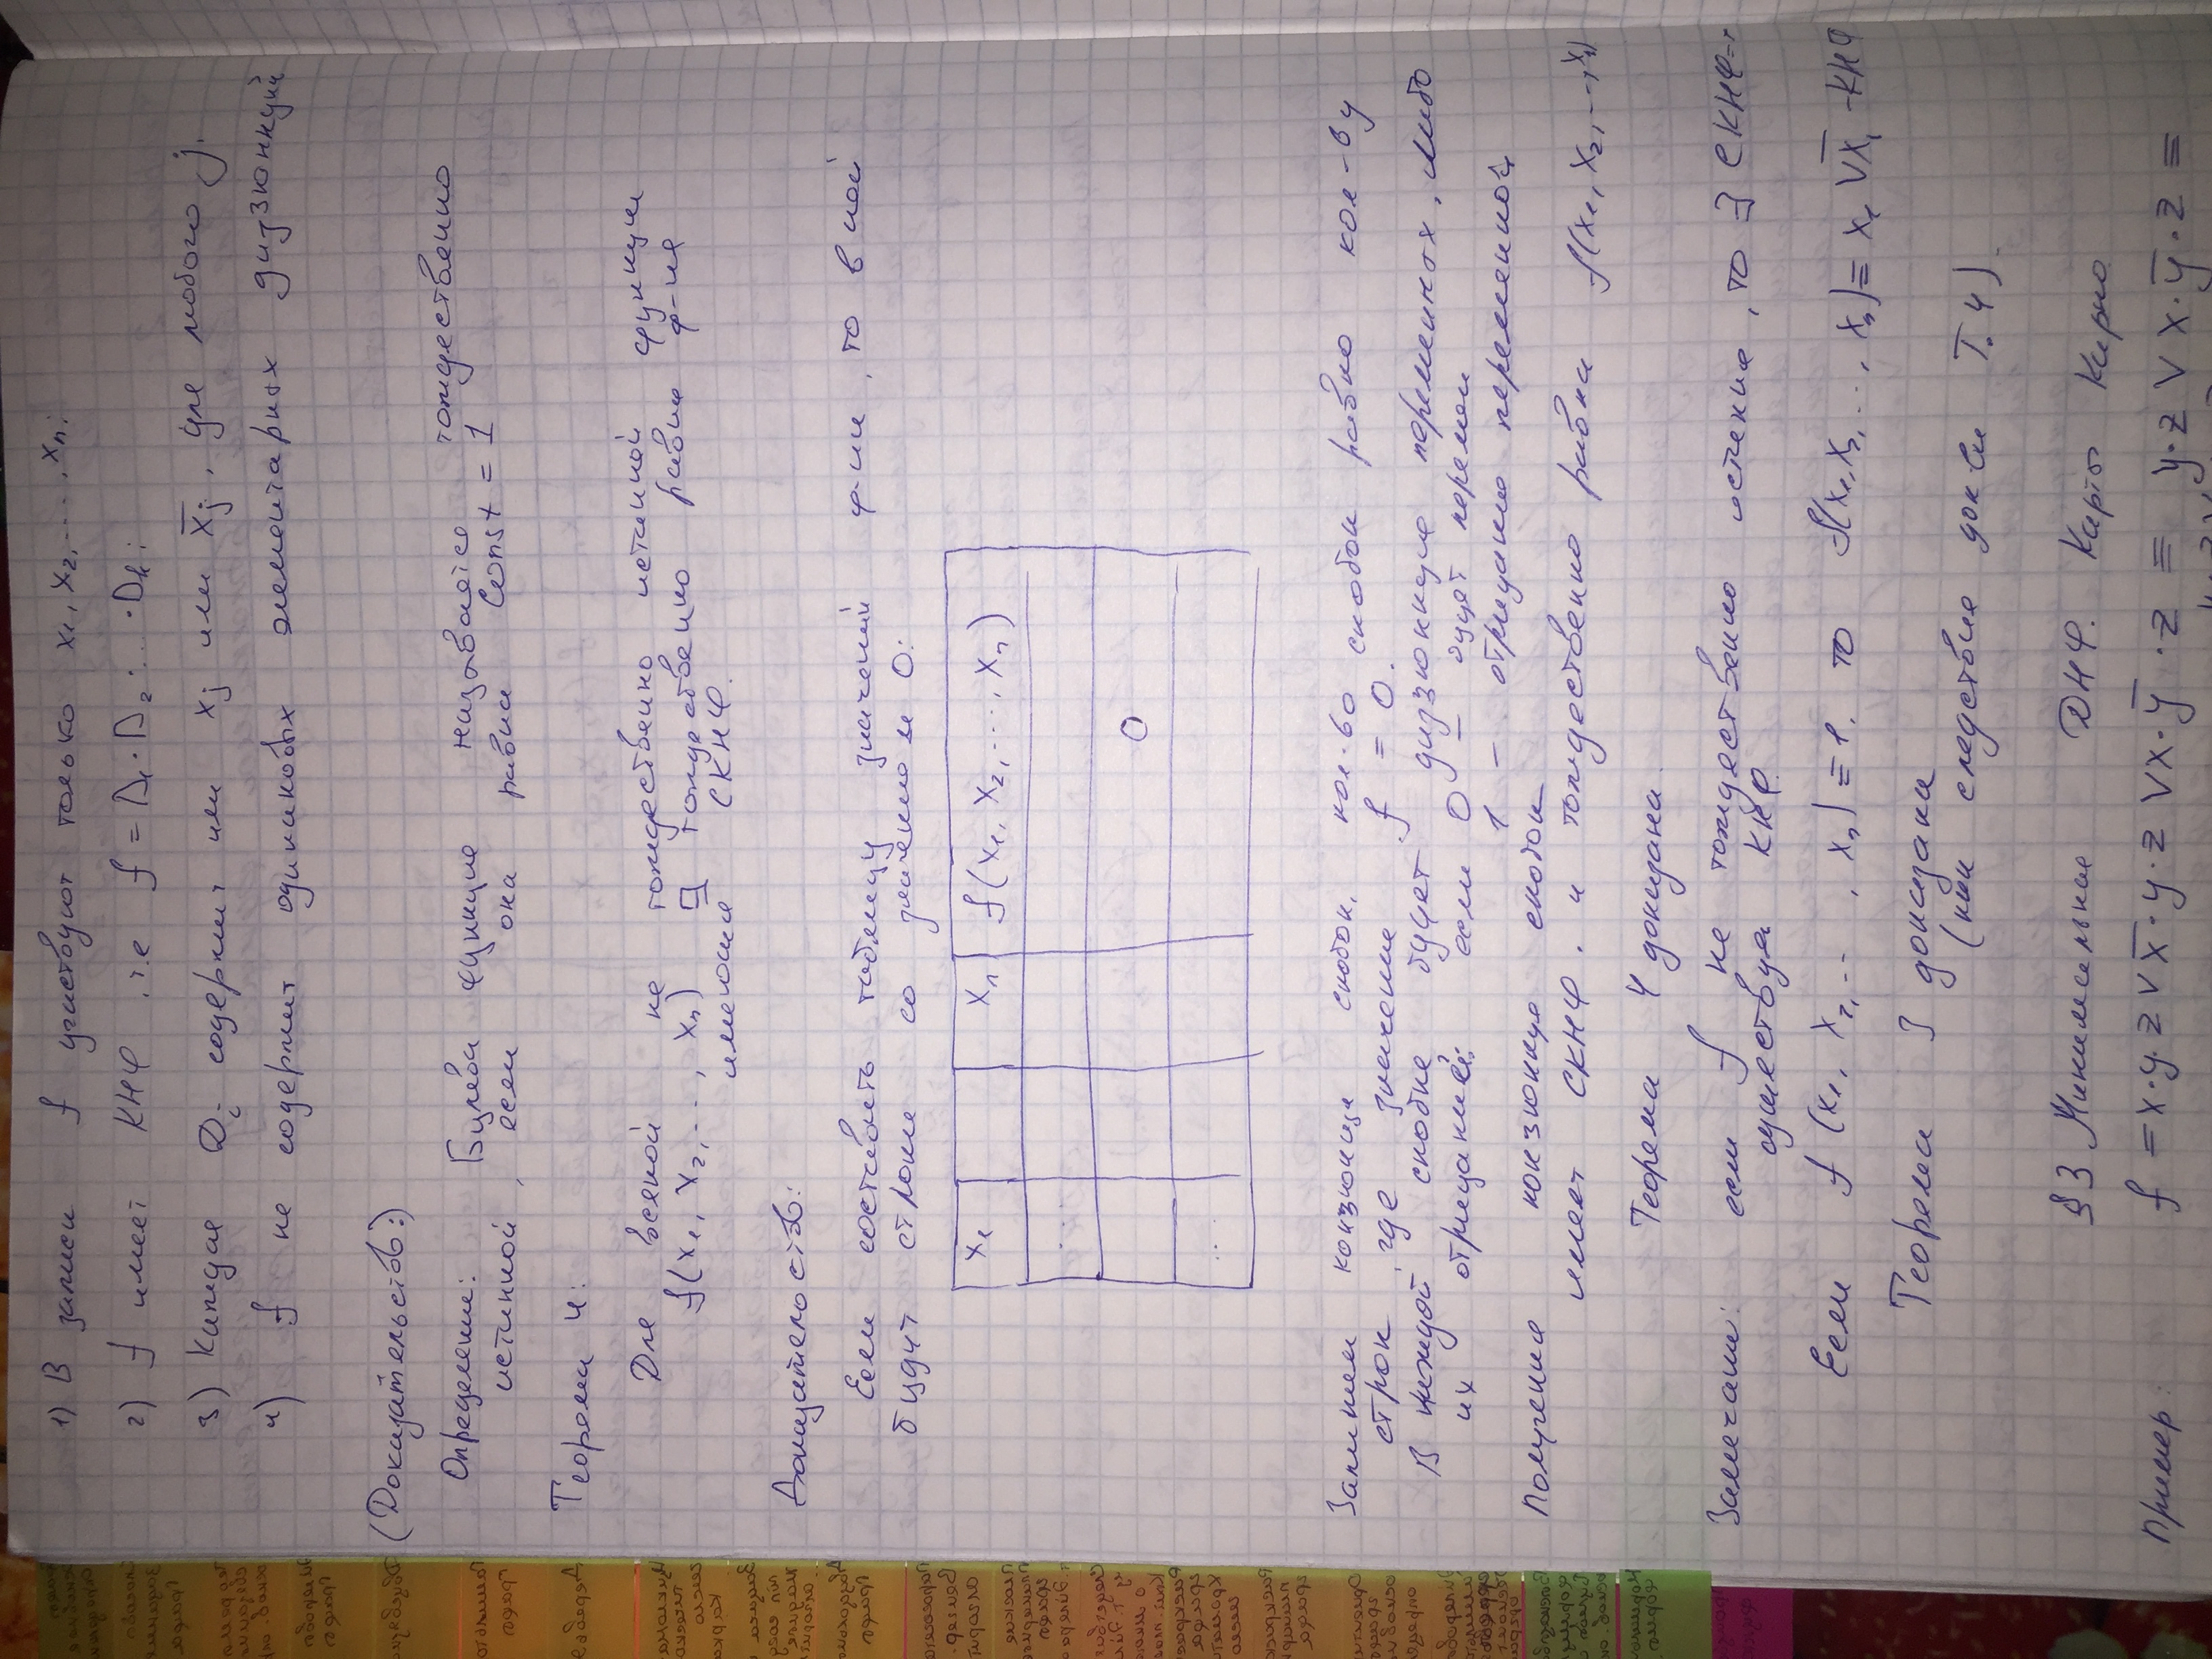 1) В записи f участвуют только x₁, x₂, ..., xₙ;
2) f имеет КНФ, т.е f = D₁·D₂·...·Dₖ;
3) Каждая Dᵢ содержит или xⱼ или x̅ⱼ, для любого j.
4) f не содержит одинаковых элементарных дизъюнкций
(Доказательство:)
Определение: Булева функция называется тождественно
истинной, если она равна Const = 1
Теорема 4:
Для всякой не тождественно истинной функции
f(x₁, x₂, ..., xₙ) ∃ тождественно равная ф-ия
имеющая СКНФ.
Доказательство:
Если составить таблицу значений ф-ии, то в ней
будут строки со значением 0:
x₁ xₙ f(x₁, x₂, ..., xₙ)
...
0
...
Запишем конъюнкция скобок, кол-во скобок равно кол-ву
строк, где значение f = 0.
В каждой скобке будет дизъюнкция переменных, либо
их отрицаний; если 0 – будет перемен
1 – отрицание переменной
Полученная конъюнкция скобок
имеет СКНФ. и тождественно равна f(x₁, x₂, ..., xₙ)
Теорема 4 доказана.
Замечание: если f не тождественно истинна, то ∃ СКНФ=>
существует КНФ.
Если f(x₁, x₂, ..., xₙ) ≡ 1, то f(x₁, x₂, ..., xₙ) ≡ x₁ ∨ x̅₁ – КНФ
Теорема 3 доказана
(как следствие док-ва Т. 4).
§3 Минимальные ДНФ. Карты Карно
Пример: f = x·y·z ∨ x̅·y·z ∨ x·y̅·z ≡ y·z ∨ x·y̅·z ≡